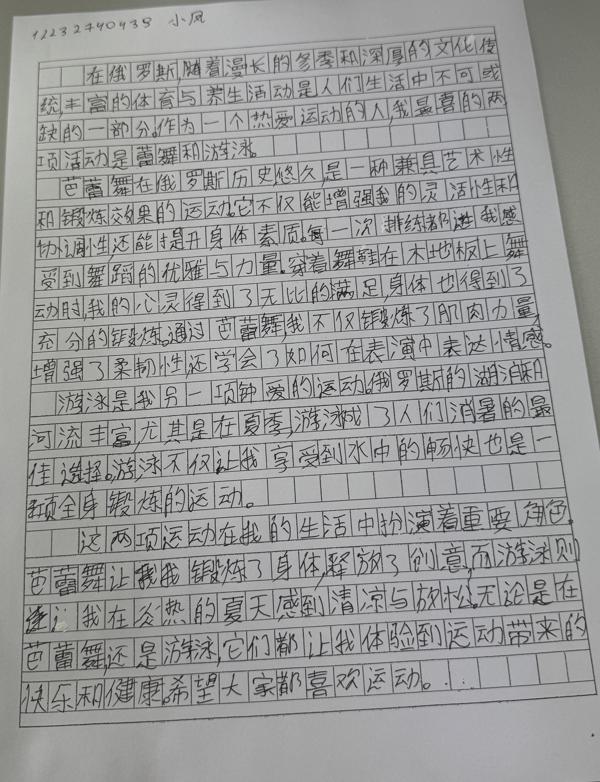 11232740438 小凤
在俄罗斯,随着漫长的冬季和深厚的文化传
统,丰富的体育与养生活动是人们生活中不可或
缺的一部分。作为一个热爱运动的人,我最喜的两
项活动是蕾舞和游泳。
芭蕾舞在俄罗斯历史悠久,是一种兼具艺术性
和锻炼效果的运动。它不仅能增强我的灵活性和
协调性,还能提升身体素质。每一次排练者 我感
受到舞蹈的优雅与力量。穿着舞鞋在木地板上舞
动时,我的心灵得到了无比的满足,身体也得到了
充分的锻炼。通过芭蕾舞,我不仅锻炼了肌肉力量,
增强了柔韧性,还学会了如何在表演中表达情感。
游泳是我另一项钟爱的运动。俄罗斯的湖泊和
河流丰富,尤其是在夏季,游泳成了人们消暑的最
佳选择。游泳不仅让我享受到水中的畅快也是一
项全身锻炼的运动。
这两项运动在我的生活中扮演着重要角色。
芭蕾舞让我我锻炼了身体,释放了创意,而游泳则
我在炎热的夏天感到清凉与放松。无论是在
芭蕾舞,还是游泳,它们都让我体验到运动带来的
快乐和健康。希望大家都喜欢运动。...